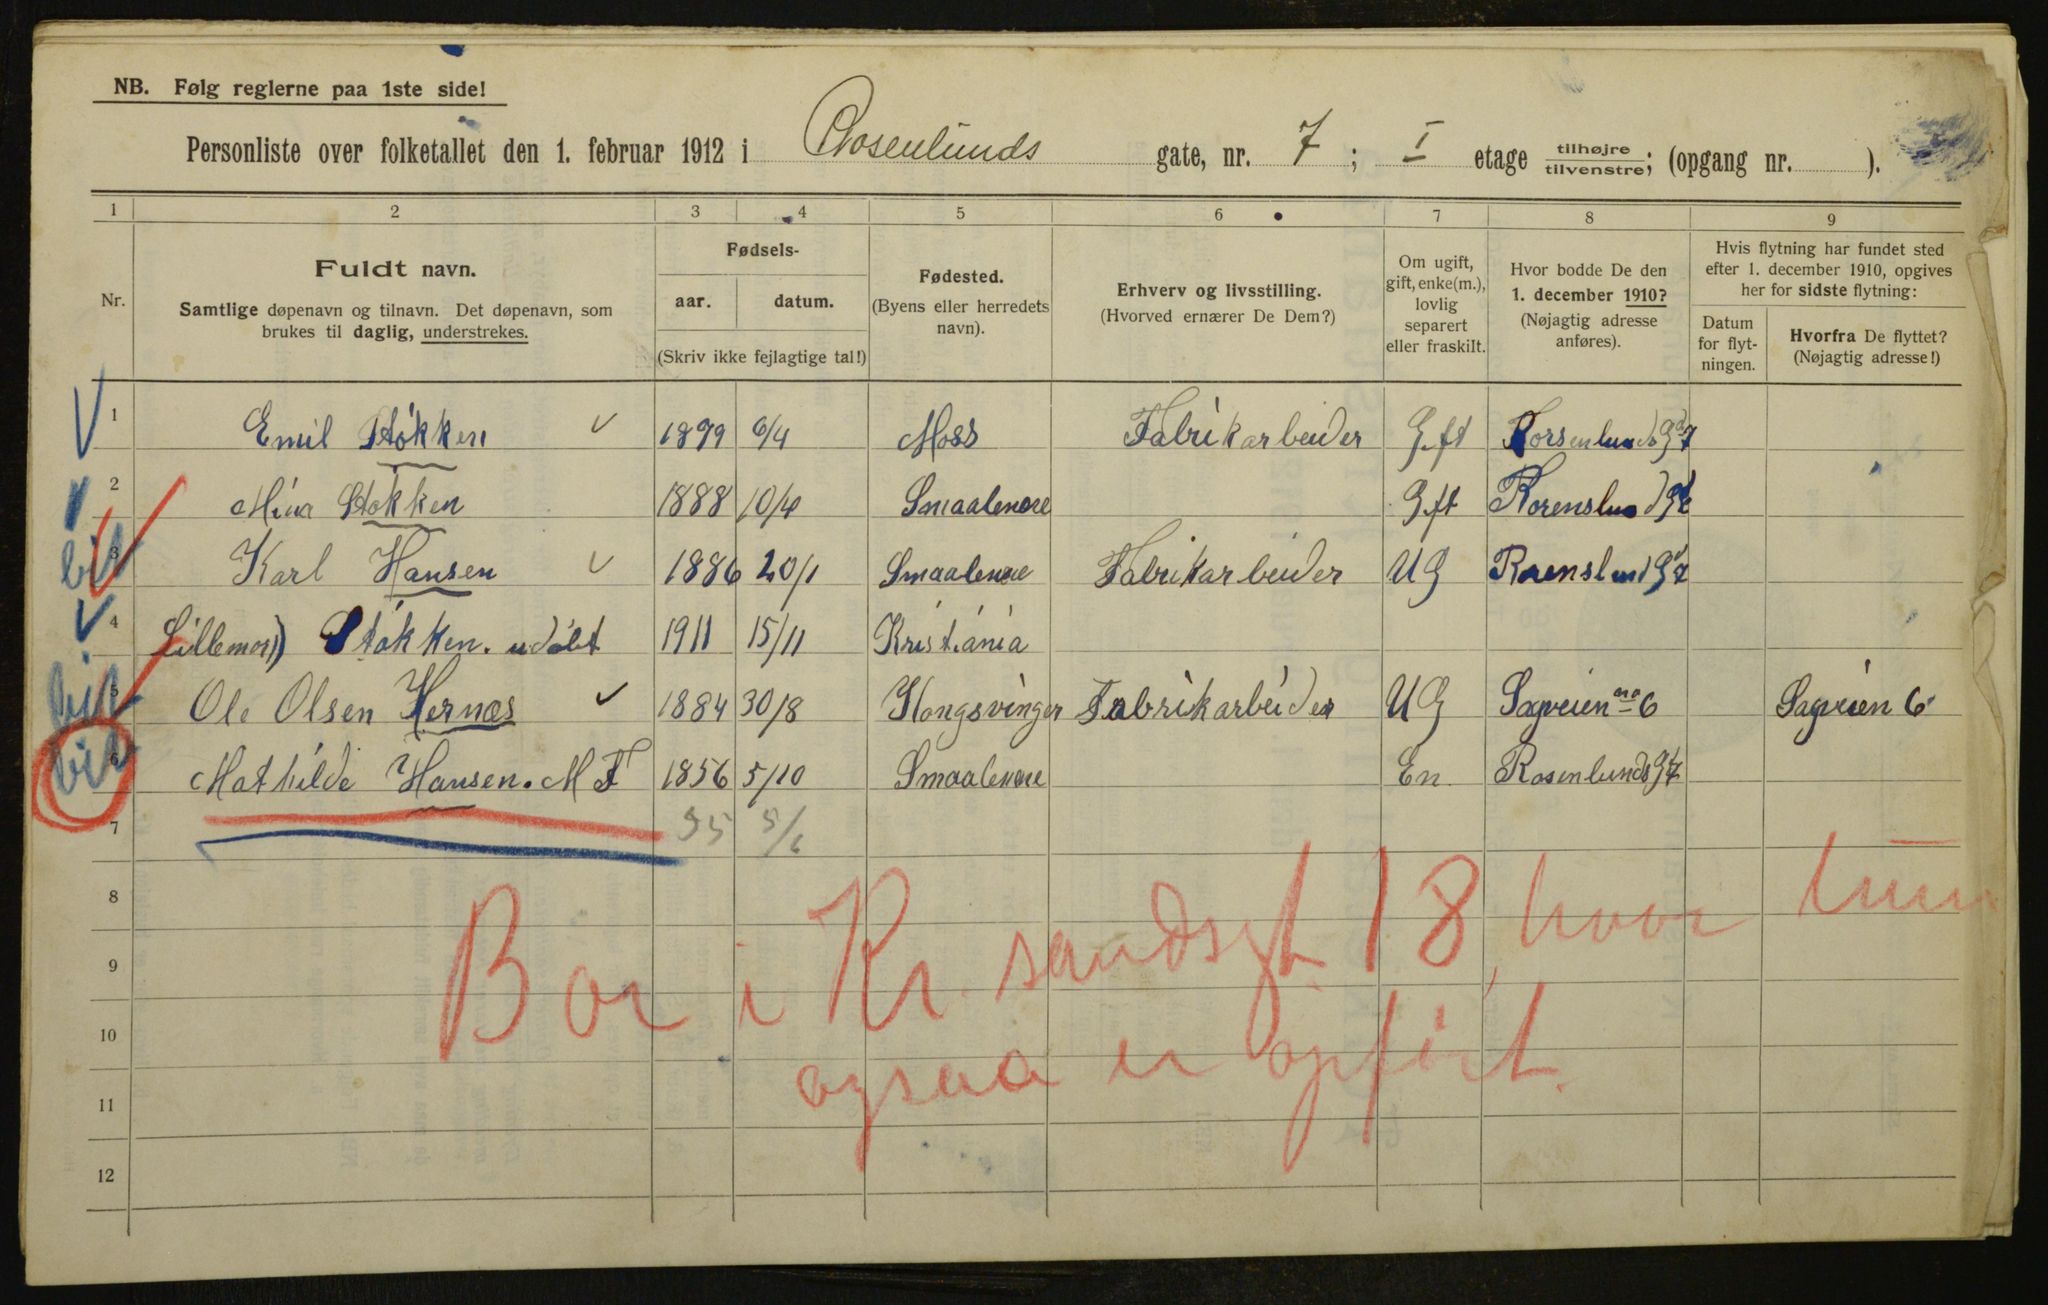 NB. Følg reglerne paa 1ste side!
Personliste over folketallet den 1. februar 1912 i Rosenlunds gate, nr. 7; I etage tilhøjre/tilvenstre; (opgang nr. ).
1 2 3 4 5 6 7 8 9
Nr.
Fuldt navn.
Samtlige døpenavn og tilnavn. Det døpenavn, som
brukes til daglig, understrekes.
Fødsels-
aar. datum.
(Skriv ikke fejlagtige tal!)
Fødested.
(Byens eller herredets
navn).
Erhverv og livsstilling.
(Hvorved ernærer De Dem?)
Om ugift,
gift, enke(m.),
lovlig
separert
eller fraskilt.
Hvor bodde De den
1. december 1910?
(Nøjagtig adresse
anføres).
Hvis flytning har fundet sted
efter 1. december 1910, opgives
her for sidste flytning:
Datum
for flyt-
ningen.
Hvorfra De flyttet?
(Nøjagtig adresse!)
1 Emil Stökken 1899 6/4 Moss Fabrikarbeider Gft Rorsenlunds Gd 7
2 Mina Stokken 1888 10/4 Smaalenene Gft Rorenslund Gt
bil 3 Karl Hansen 1886 20/1 Smaalenene Fabrikarbeider UG Rorenslund Gt 7
4 Lillemor Stökken. udöbt 1911 15/11 Kristiania
bil 5 Ole Olsen Hernæs 1884 30/8 Kongsvinger Fabrikarbeider UG Sagveien no 6 Sagveien 6
bil 6 Mathilde Hansen. M F 1856 5/10 Smaalenene En. Rosenlunds Gt 7
7 55 5/6
8
Bor i Kr.sandsgt. 18, hvor hun
9
10
ogsaa er opført.
11
12